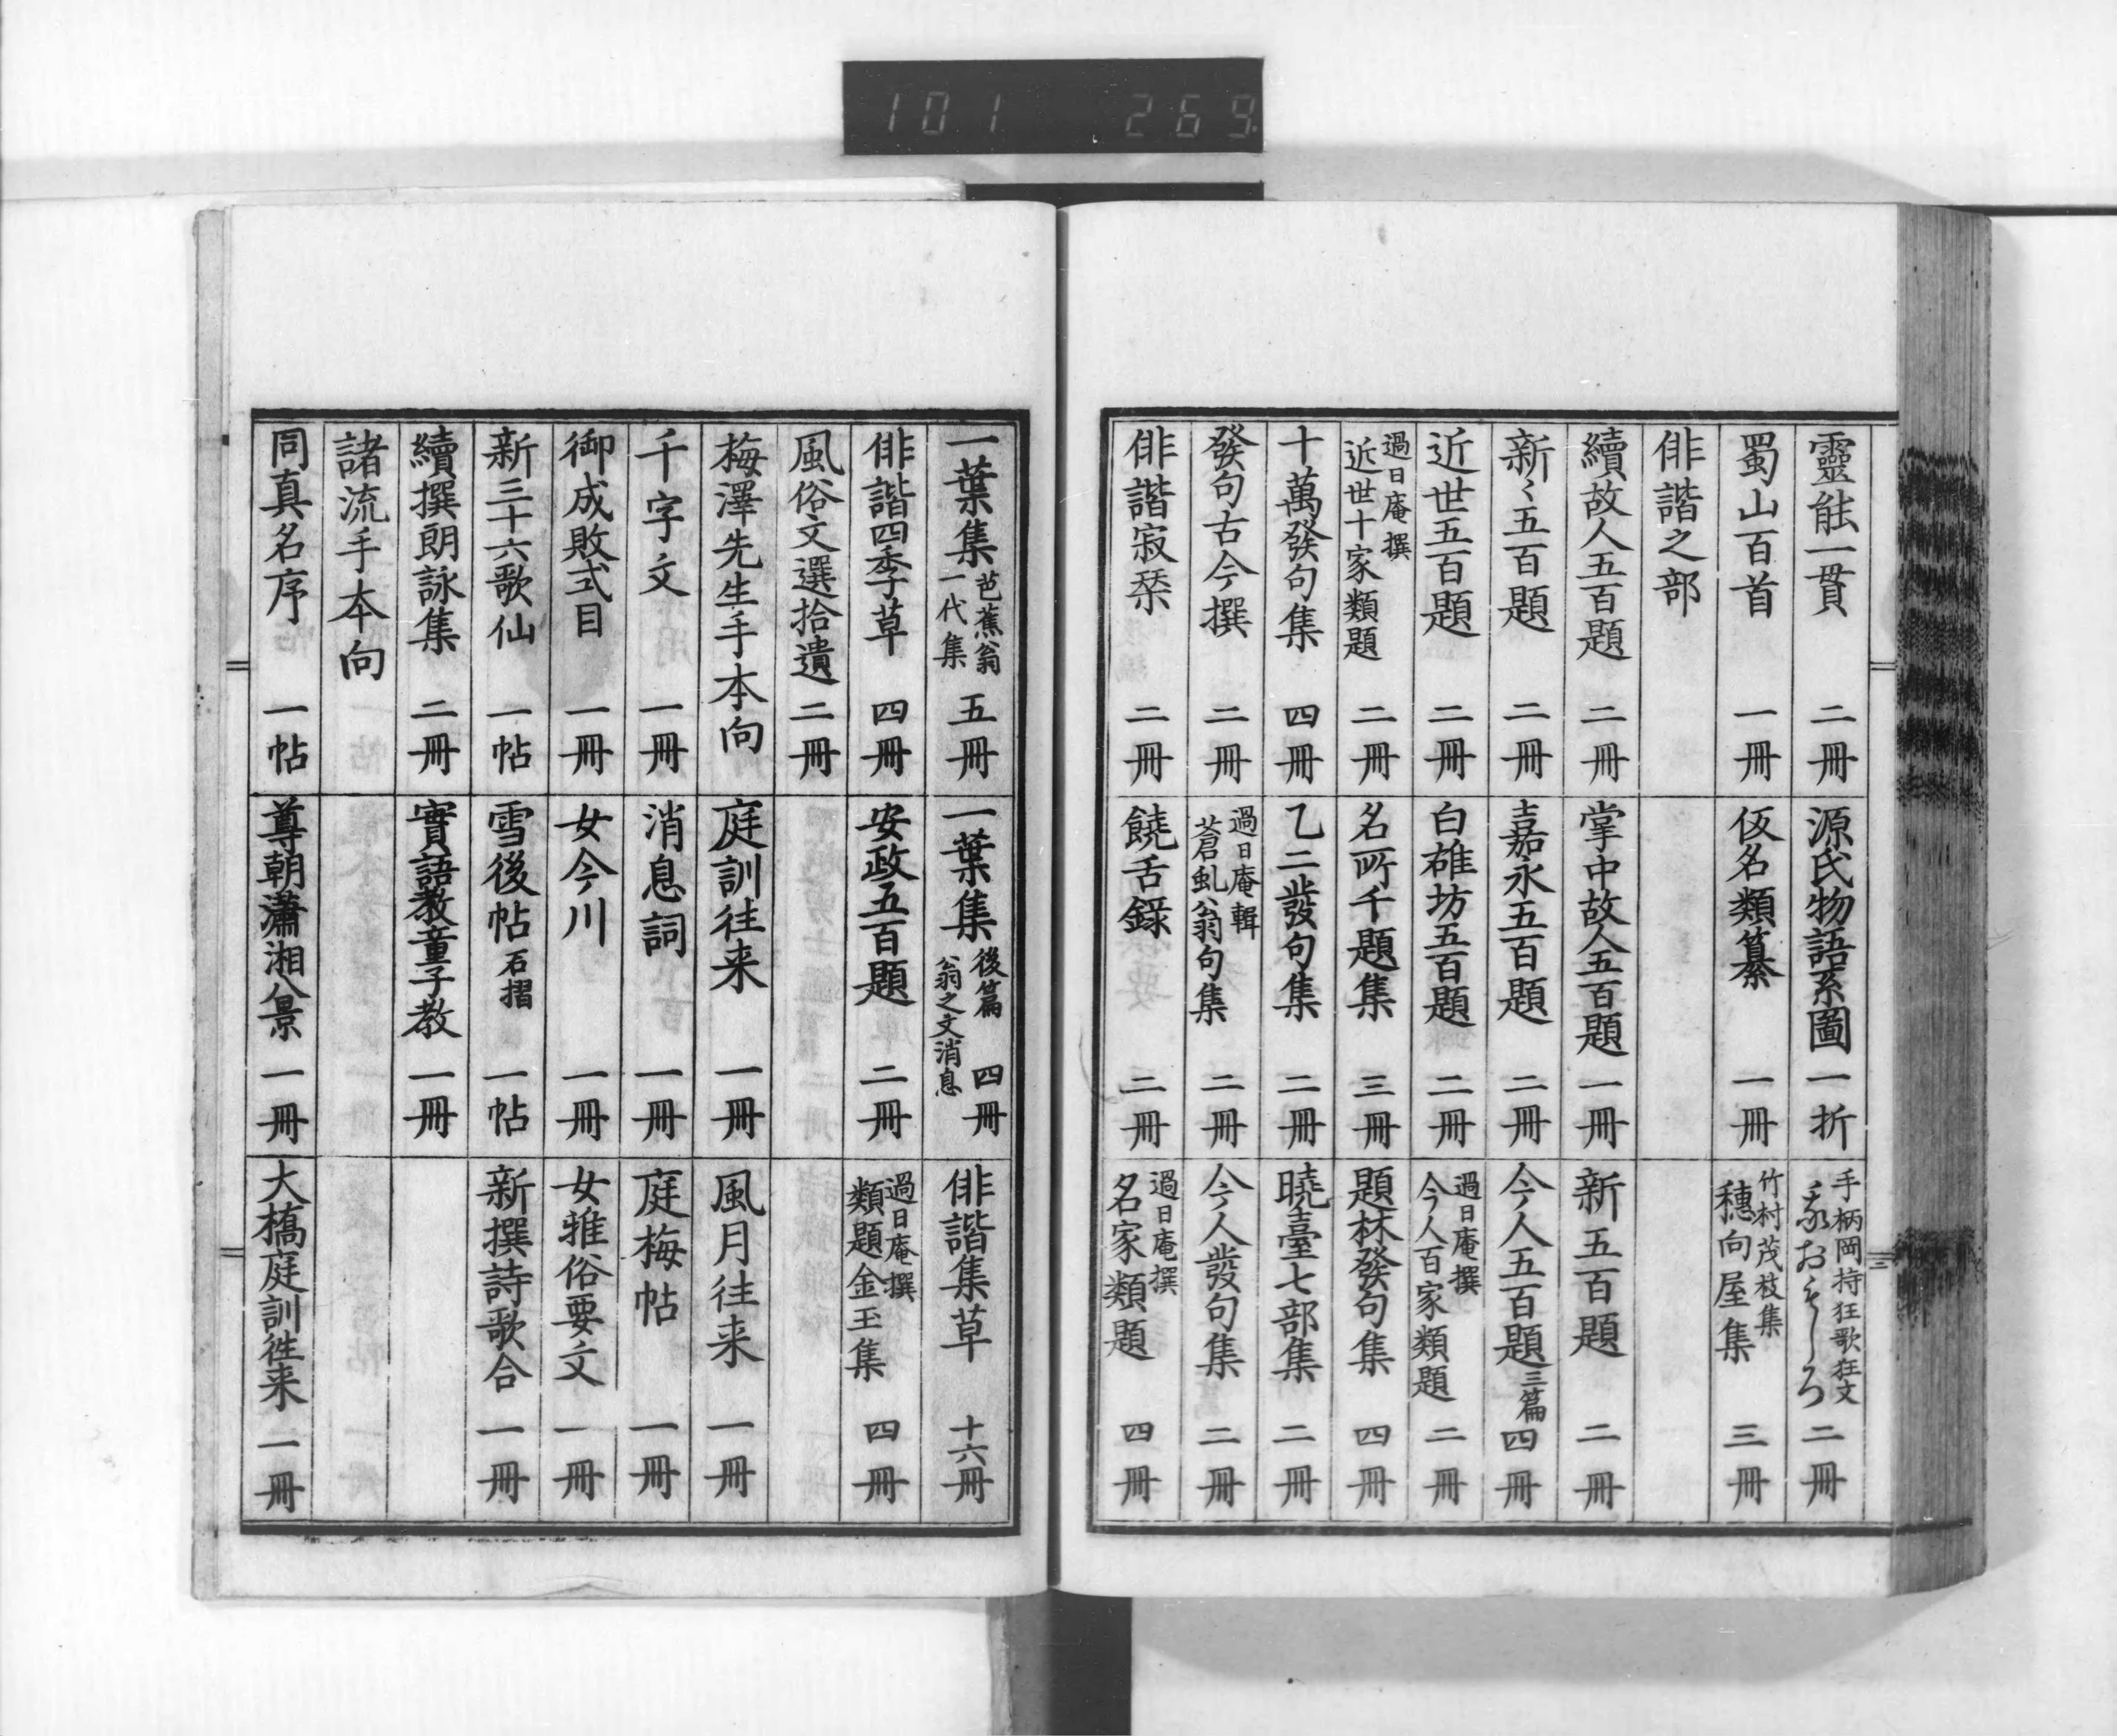 101 269
靈能一貫 二冊
源氏物語系圖 一折
手柄岡持狂歌狂文
我おもしろ 二冊
蜀山百首 一冊
仮名類纂 一冊
竹村茂枝集
穗向屋集 三冊
俳諧之部
續故人五百題 二冊
掌中故人五百題 一冊
新五百題 二冊
新〻五百題 二冊
嘉永五百題 二冊
今人五百題 三篇 四冊
近世五百題 二冊
白雄坊五百題 二冊
過日庵撰
今人百家類題 二冊
過日庵撰
近世十家類題 二冊
名所千題集 三冊
題林發句集 四冊
十萬發句集 四冊
乙二發句集 二冊
曉臺七部集 二冊
發句古今撰 二冊
過日庵輯
蒼虬翁句集 二冊
今人發句集 二冊
俳諧寂栞 二冊
饒舌録 二冊
過日庵撰
名家類題 四冊
一葉集 芭蕉翁
一代集 五冊
一葉集 後篇
翁之文消息 四冊
俳諧集草 十六冊
俳諧四季草 四冊
安政五百題 二冊
過日庵撰
類題金玉集 四冊
風俗文選拾遺 二冊
梅澤先生手本向
庭訓往来 一冊
風月往来 一冊
千字文 一冊
消息詞 一冊
庭梅帖 一冊
御成敗式目 一冊
女今川 一冊
女雅俗要文 一冊
新三十六歌仙 一帖
雪後帖 石摺 一帖
新撰詩歌合 一冊
續撰朗詠集 二冊
實語教童子教 一冊
諸流手本向
同真名序 一帖
尊朝瀟湘八景 一冊
大橋庭訓徃来 一冊